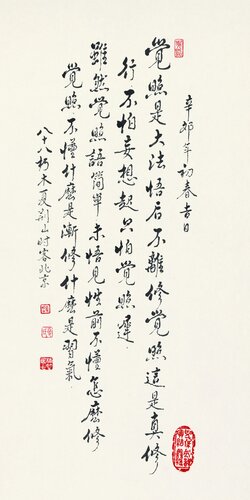 辛卯年初春吉日
覺照是大法悟后不離修覺照這是真修
行不怕妄想起只怕覺照遲
雖然覺照語簡單未悟見性前不懂怎麽修
覺照不懂什麽是漸修什麽是習氣
八十八朽木夏荆山时客北京